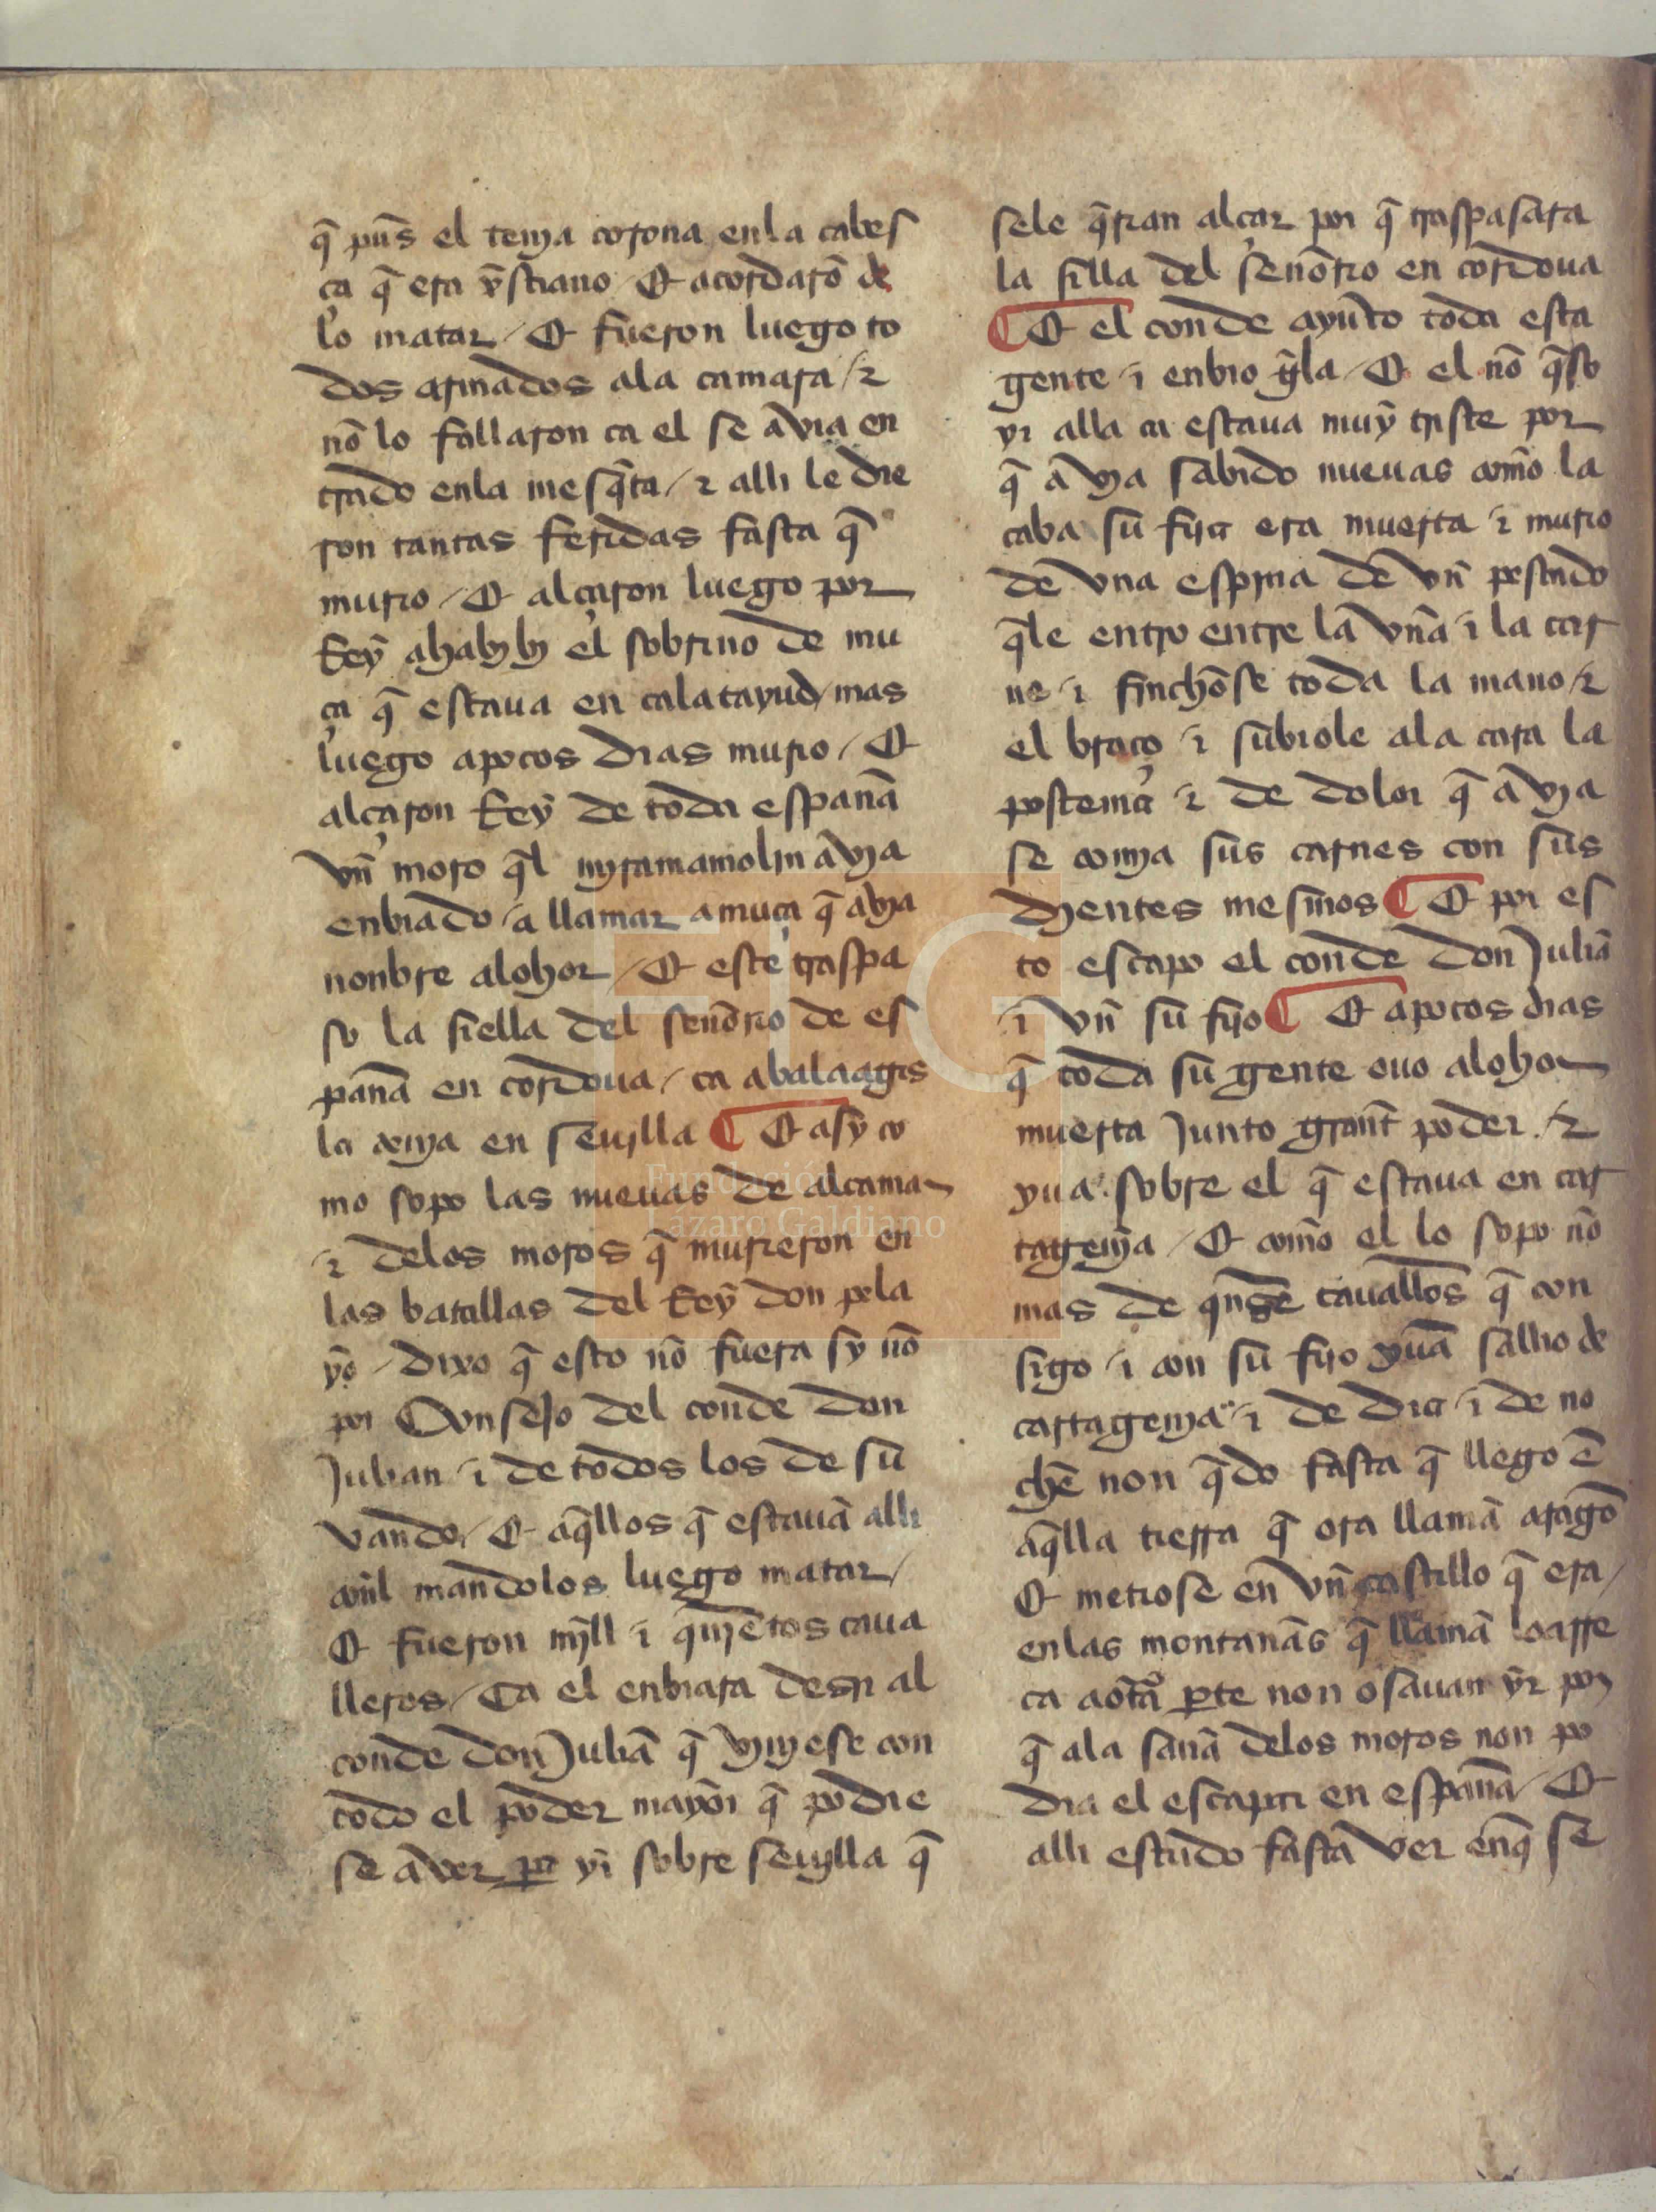 q̄ pūs el tenja corona enla cabes
ça q̄ era xp̄stiano / Et acordarō de
lo matar / Et fueron luego to
dos armados ala camara / ⁊
nō lo fallaron ca el se avia en
trado enla mesq̄ta / ⁊ alli le die
ron tantas feridas fasta q̄
murio / Et alçaron luego por
Rey ahabyb el sobrino de mu
ça q̄ estaua en calatayud / mas
luego apocos dias murio / Et
alçaron Rey de toda españa
vn̄ moro q̄l myramamolin avya
enbiado / a llamar amuça q̄ avya
nonbre alohor / Et este traspa
so la siella del señorio de es
paña en cordoua / ca abalaagis
la tenja en seujlla ¶ Et asy co
mo sopo las nueuas de alcama
⁊ delos moros q̄ murieron en
las batallas del Rey don pela
yo / dixo q̄ esto nō fuera sy nō
por Consejo del conde don
Julian / ⁊ de todos los de sū
vando / Et aq̄llos q̄ estauā alli
conl mandolos luego matar /
Et fueron mjll ⁊ qujētos caua
lleros / Ca el enbiara desir al
conde don Juliā q̄ vjnjese con
todo el poder mayor q̄ podie
se aver pa yr sobre seujlla q̄
sele q̄rian alçar por q̄ traspasara
la silla del señorio en cordoua
¶ Et el conde ayūto toda esta
gente / ⁊ enbio gela / Et el nō q̄so
yr alla ca estaua muy triste por
q̄ avya sabido nueuas com̄o la
caba sū fija era muerta ⁊ murio
de vna espina de vn̄ pescado
q̄le entro entre la vña ⁊ la car
ne / ⁊ finchose toda la mano / ⁊
el braço / ⁊ subiole ala cara la
postema / ⁊ de dolor q̄ avya
se comja sus carnes con sus
dientes mesmos ¶ Et por es
to escapo el conde don Juliā
⁊ vn̄ sū fijo ¶ Et apocos dias
q̄ toda sū gente ouo alohor
muerta Junto grant poder / ⁊
yua sobre el q̄ estaua en car
tagenja / Et com̄o el lo sopo nō
mas de qnse cauallos q̄ con
sigo / ⁊ con sū fijo yuā salio de
cartagenja / ⁊ de dia ⁊ de no
che non q̄do fasta q̄ llego ē
aq̄lla tierra q̄ ora llamā aragō
Et metiose en vn̄ castillo q̄ era /
enlas montañas q̄ llamā loarre
ca aotrā pte non osauan yr por
q̄ ala saña delos moros non po
dia el escapar en españa / Et
alli estudo fasta ver enq̄ se